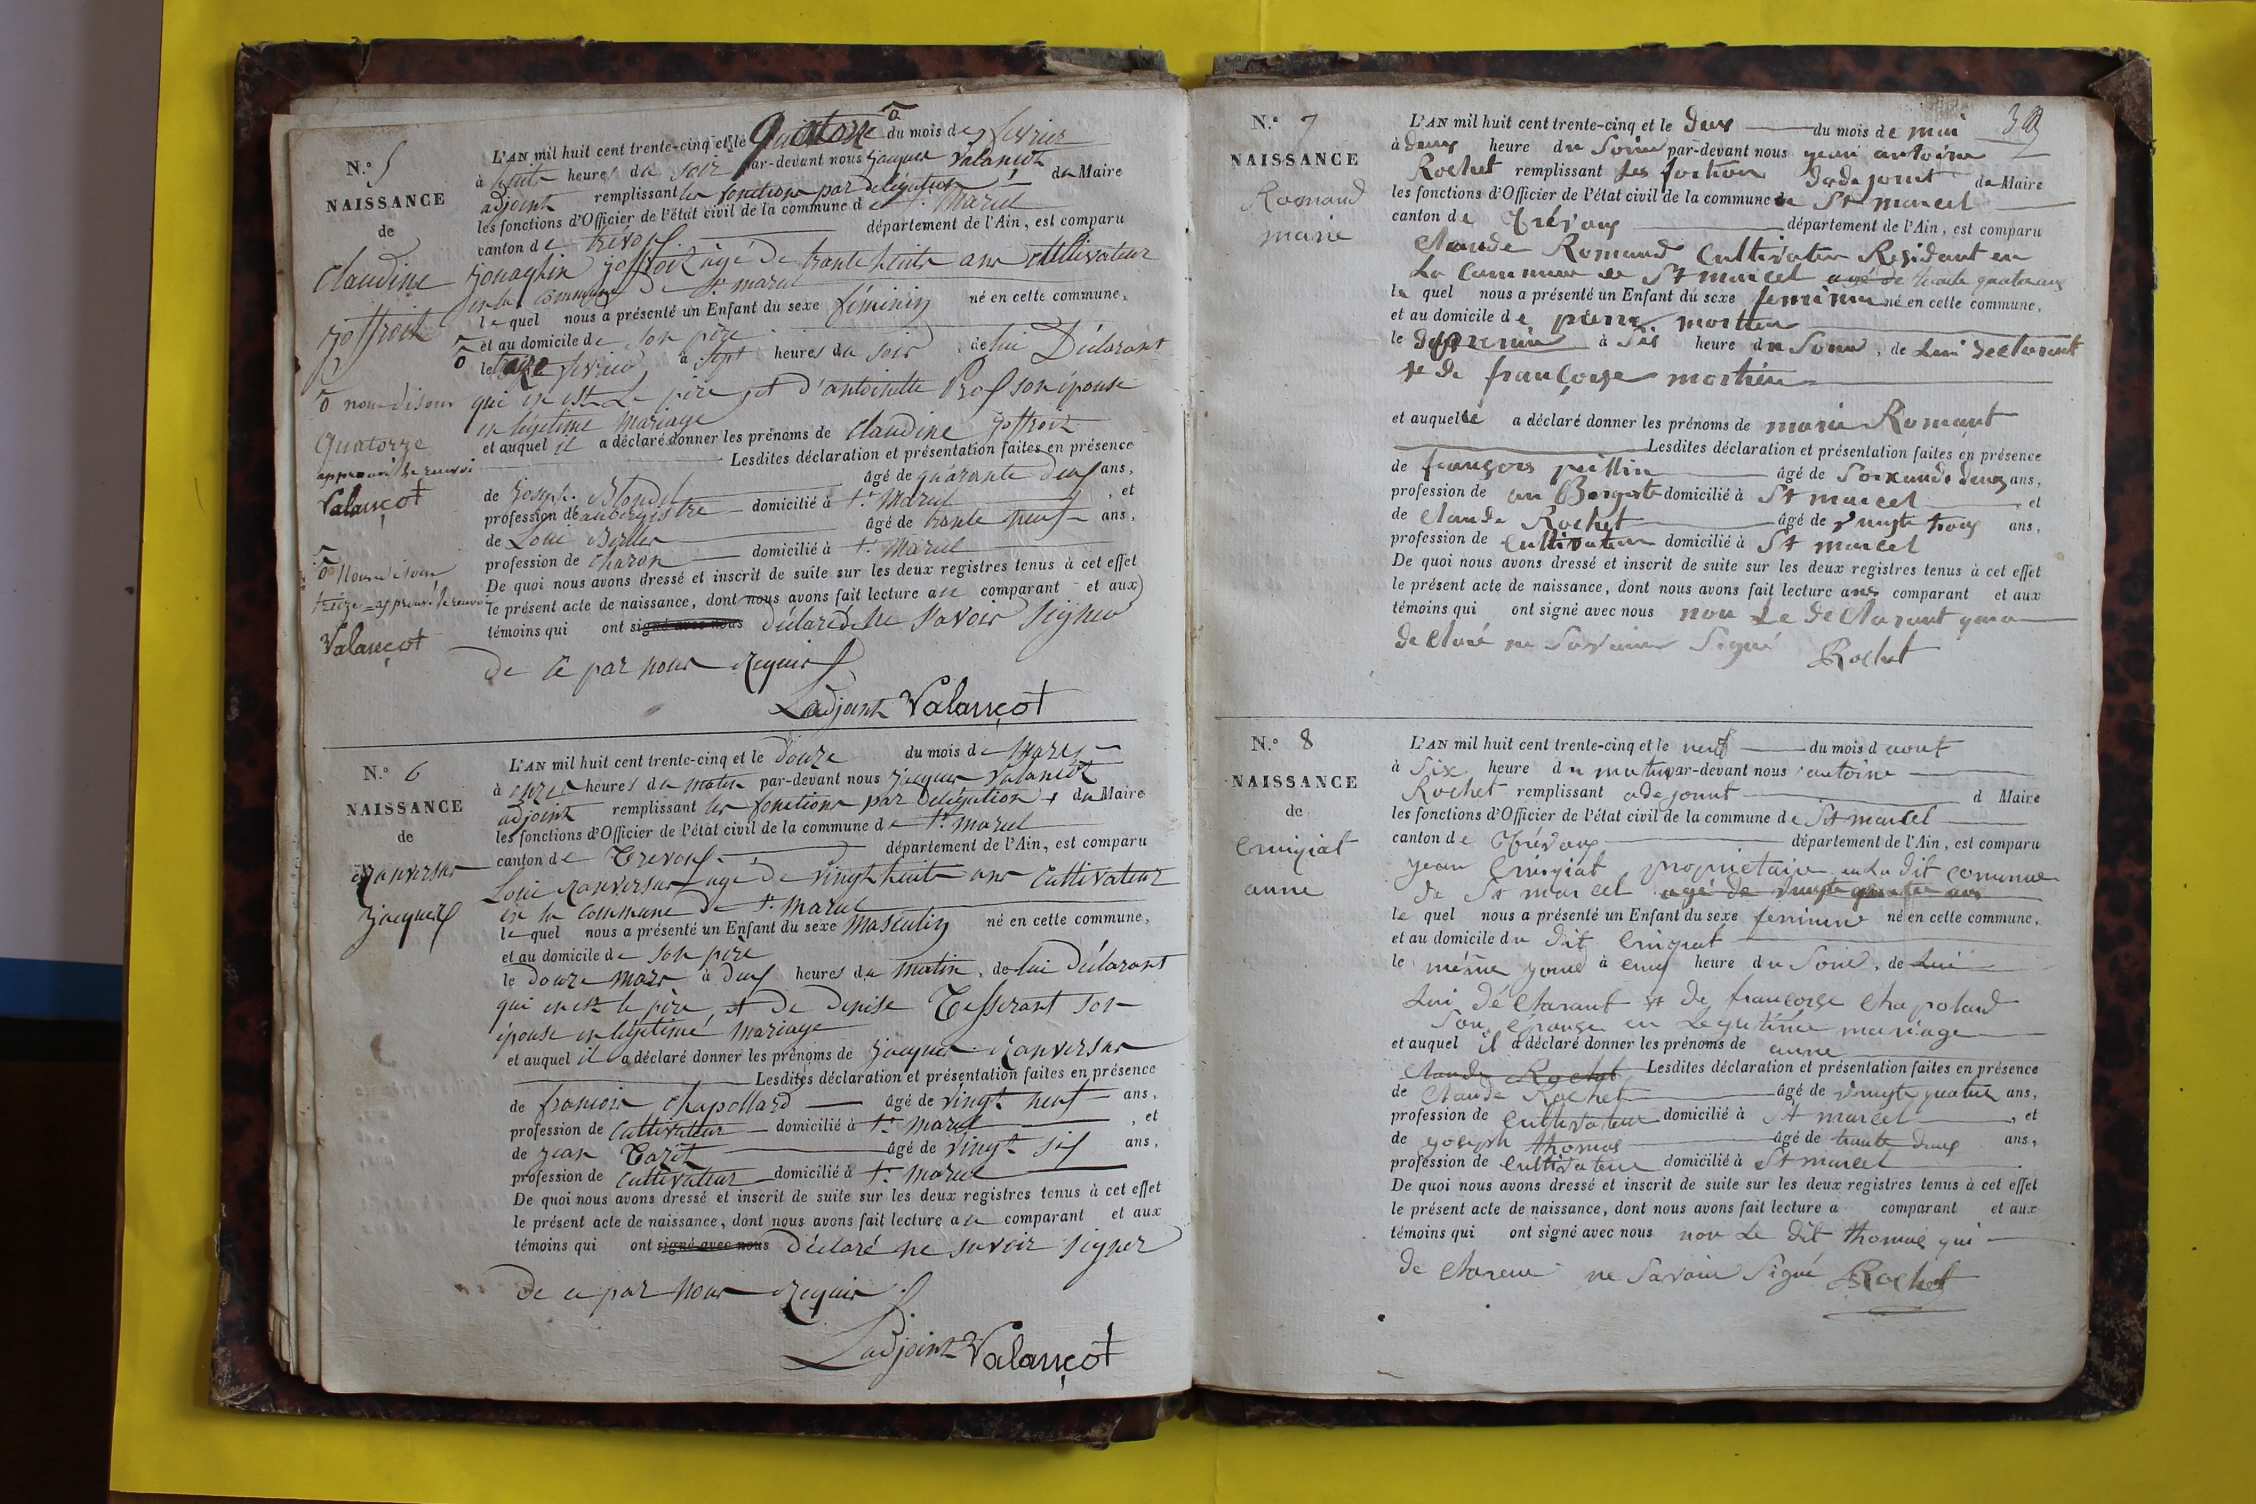 N.° 5
NAISSANCE
de
Claudine
joffroit
ō nous disons
Quatorze
approuvé le renvoi
Valançot
ō Nous disons
treize = approuvé le renvoi
Valançot
L'AN mil huit cent trente-cinq et le Quatorze ō du mois de fevrier
à huit heures du soir par-devant nous jacques Valançot
adjoint remplissant les fonctions par délégation du Maire
les fonctions d'Officier de l'état civil de la commune de St. Marcel
canton de trévoux département de l'Ain, est comparu
joffroit âgé de trante huits ans cultivateur
en la commune de St. marcel
le quel nous a présenté un Enfant du sexe féminin né en cette commune,
et au domicile de son père
ō le treize fevrier à sept heures du soir, de lui Déclarant
qui en est le père et d'antoinette Bros son épouse
en légitime Mariage
et auquel il a déclaré donner les prénoms de Claudine joffroit
Lesdites déclaration et présentation faites en présence
de joseph Blondel âgé de quarante deux ans,
profession de aubergistre domicilié à St. Marcel, et
de Loui âgé de trante neuf ans,
profession de charon domicilié à St. Marcel
De quoi nous avons dressé et inscrit de suite sur les deux registres tenus à cet effet
le présent acte de naissance, dont nous avons fait lecture au comparant et aux
témoins qui ont signé avec nous déclaré de ne savoir signer
de ce par nous requis
Ladjoint Valançot
N.° 6
NAISSANCE
de
Ranversas
jacques
L'AN mil huit cent trente-cinq et le douze du mois de Mars
à onze heures du matin par-devant nous jacques Valançot
adjoint remplissant les fonctions par délégation du Maire
les fonctions d'Officier de l'état civil de la commune de St. marcel
canton de Trevoux département de l'Ain, est comparu
Loui Ranversas âgé de vingt huits ans cultivateur
en la commune de St. Marcel
le quel nous a présenté un Enfant du sexe Masculin né en cette commune,
et au domicile de son père
le douze mars à deux heures du matin, de lui Déclarant
qui en est le père et de Denise Tesserant son
épouse en légitime mariage
et auquel il a déclaré donner les prénoms de jacques Ranversas
Lesdites déclaration et présentation faites en présence
de francois chapollard âgé de vingt neuf ans,
profession de cultivateur domicilié à St. Marcel, et
de jean Taret âgé de vingt six ans,
profession de cultivateur domicilié à St. Marcel
De quoi nous avons dressé et inscrit de suite sur les deux registres tenus à cet effet
le présent acte de naissance, dont nous avons fait lecture au comparant et aux
témoins qui ont signé avec nous déclaré ne savoir signer
de ce par nous requis
Ladjoint Valançot
N.° 7
NAISSANCE
Romand
marie
L'AN mil huit cent trente-cinq et le deux du mois de mai
à deux heure du Soire par-devant nous jean antoine
Rochet remplissant les foction dadejouint de Maire
les fonctions d'Officier de l'état civil de la commune de St marcel
canton de Trévoux département de l'Ain, est comparu
Claude Romand Cultivateur Residant en
La Commune de St marcel agé de trante quatre ans
le quel nous a présenté un Enfant du sexe feminin né en cette commune,
et au domicile de pierre mortier
le à Six heure du Soire, de Lui declarant
et de françoise mortier
et auquelle a déclaré donner les prénoms de marie Romant
Lesdites déclaration et présentation faites en présence
de françois âgé de Soixande deux ans,
profession de aubergiste domicilié à St marcel, et
de Claude Rochet âgé de vingte trois ans,
profession de Cultivateur domicilié à St marcel
De quoi nous avons dressé et inscrit de suite sur les deux registres tenus à cet effet
le présent acte de naissance, dont nous avons fait lecture aux comparant et aux
témoins qui ont signé avec nous non Le declarant qui a
declaré ne Savoire Signé
Rochet
N.° 8
NAISSANCE
de
Cruiziat
anne
L'AN mil huit cent trente-cinq et le neuf du mois d aout
à Six heure du matin par-devant nous antoine
Rochet remplissant adejouint d Maire
les fonctions d'Officier de l'état civil de la commune de St marcel
canton de Trévoux département de l'Ain, est comparu
jean Cruiziat propriétaire en La dit commune
de St marcel agé de vingte quatre ans
le quel nous a présenté un Enfant du sexe feminin né en cette commune,
et au domicile du dit Cruiziat
le même jour à cinq heure du Soire, de Lui
Lui déclarant et de françoise Chapoland
Son épouse en Legitime mariage
et auquel il a déclaré donner les prénoms de anne
Claude Rochet Lesdites déclaration et présentation faites en présence
de Claude Rochet âgé de vingte quatre ans,
profession de Cultivateur domicilié à St marcel, et
de joseph thomas âgé de trante deux ans,
profession de Cultivateur domicilié à St marcel
De quoi nous avons dressé et inscrit de suite sur les deux registres tenus à cet effet
le présent acte de naissance, dont nous avons fait lecture a comparant et aux
témoins qui ont signé avec nous non Le dit thomas qui
ne Savoir Signé Rochet